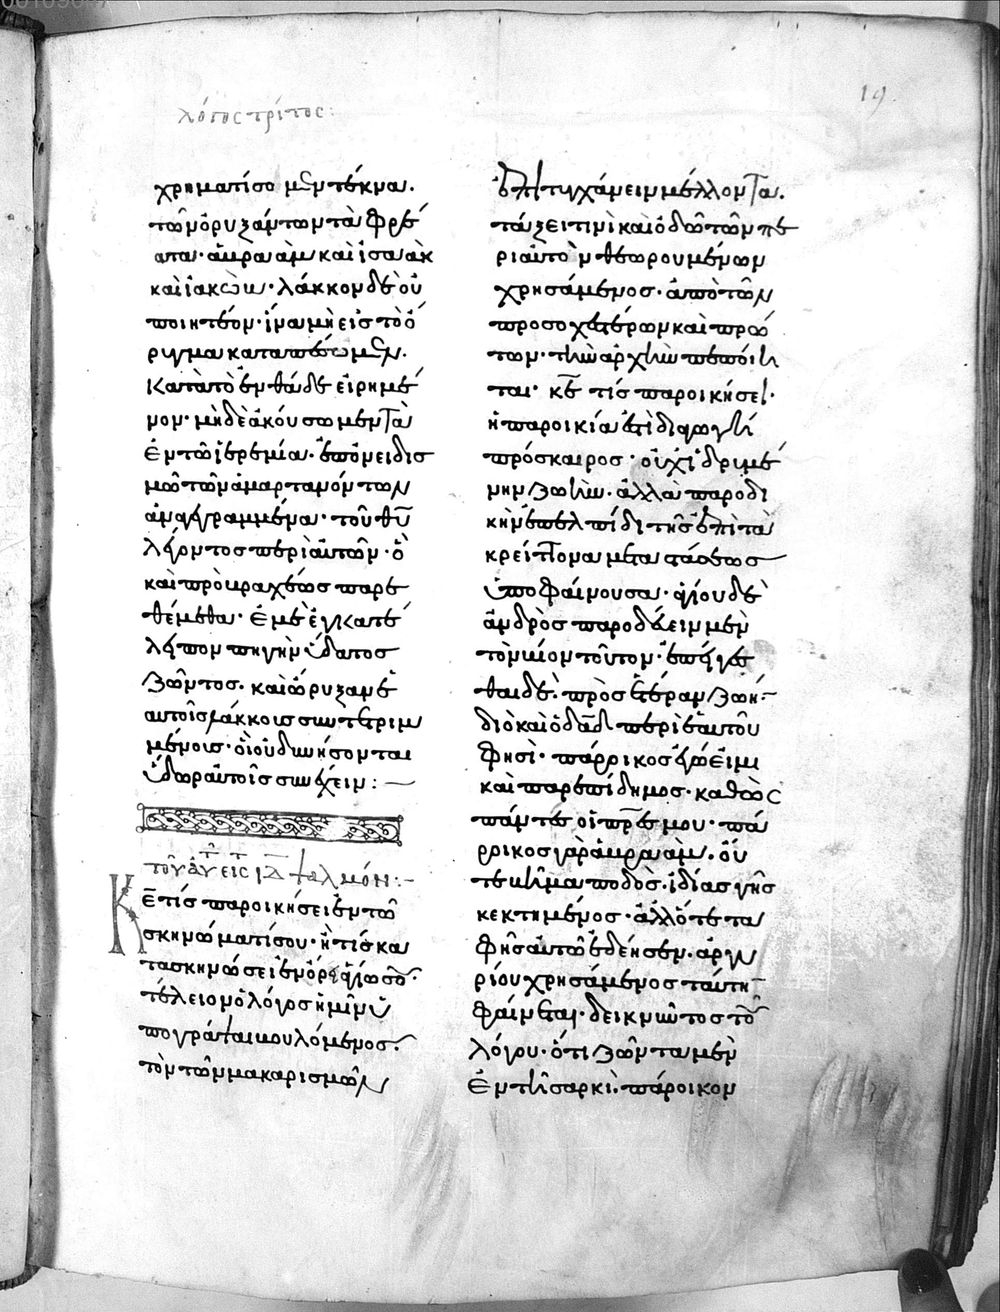 19
λόγος τρίτος:
χρηματίσομεν τέκνα.
τῶν ὀρυξάντων τὰ φρέ
ατα· ἀβραὰμ καὶ ἰσαὰκ
καὶ ἰακὼβ· λάκκον δὲ οὐ
ποιητέον· ἵνα μὴ εἰς τὸ ὄ
ρυγμα καταπέσωμεν.
Κατὰ τὸ ἐνθάδε εἰρημέ
νον· μηδὲ ἀκούσωμεν τὰ
ἐν τῶ ἱερεμία· ἐπ' ὀνειδισ
μῶ τῶν ἁμαρτανόντων
ἀναγεγραμμένα· τοῦ θυ
λέγοντος περὶ αὐτῶν· ὃ
καὶ πρὸ βραχέως παρε
θέμεθα· Ἐμὲ ἐγκατέ
λιπον πηγὴν ὕδατος
ζῶντος· καὶ ὤρυξαν ἑ
αυτοῖς λάκκους συντετριμ
μένους· οἳ οὐ δυνήσονται
ὕδωρ αὐτοῖς συνέχειν:
τοῦ αὐ εἰς ΙΔ ψαλμόν:
Κε τίς παροικήσει ἐν τῶ
σκηνώματί σου· ἢ τίς κα
τασκηνώσει ἐν ὄρει ἁγίω σου·
τέλειον ὁ λόγος ἡμῖν ὑ
πογράψαι βουλόμενος·
τὸν τῶν μακαρισμῶν
ἐπιτυχάνειν μέλλοντα.
τάξει τινὶ καὶ ὁδῶ τῶν πε
ρὶ αὐτὸν θεωρουμένων
χρησάμενος· ἀπὸ τῶν
προσοχεστέρων καὶ πρώ
των· τὴν ἀρχὴν πεποίη
ται· κε τίς παροικήσει·
ἡ παροικία ἐστὶ διαγωγὴ
πρόσκαιρος· οὐχ ἱδρυμέ
νην ζωὴν· ἀλλὰ παροδι
κὴν ἐπ' ἐλπίδι τῆς ἐπὶ τὰ
κρείττονα μεταστάσεως
ὑποφαίνουσα· ἁγίου δὲ
ἀνδρὸς παροδεύειν μὲν
τὸν βίον τοῦτον· ἐπείγε
σθαι δὲ πρὸς ἑτέραν ζωήν·
διὸ καὶ ὁ δαδ περὶ ἑαυτοῦ
φησὶ· πάροικος ἐγώ εἰμι
καὶ παρεπίδημος· καθὼς
πάντες οἱ πρες μου· πά
ροικος γὰρ ἀβραὰμ· οὔ
τε βῆμα ποδὸς· ἰδίας γῆς
κεκτημένος· ἀλλ' ὅτε τα
φῆς αὐτῶ ἐδέησεν· ἀργυ
ρίου χρησάμενος ταύτην
φαίνεται· δεικνῦντος τοῦ
λόγου· ὅτι ζῶντα μὲν
ἐν τῆ σαρκὶ· πάροικον